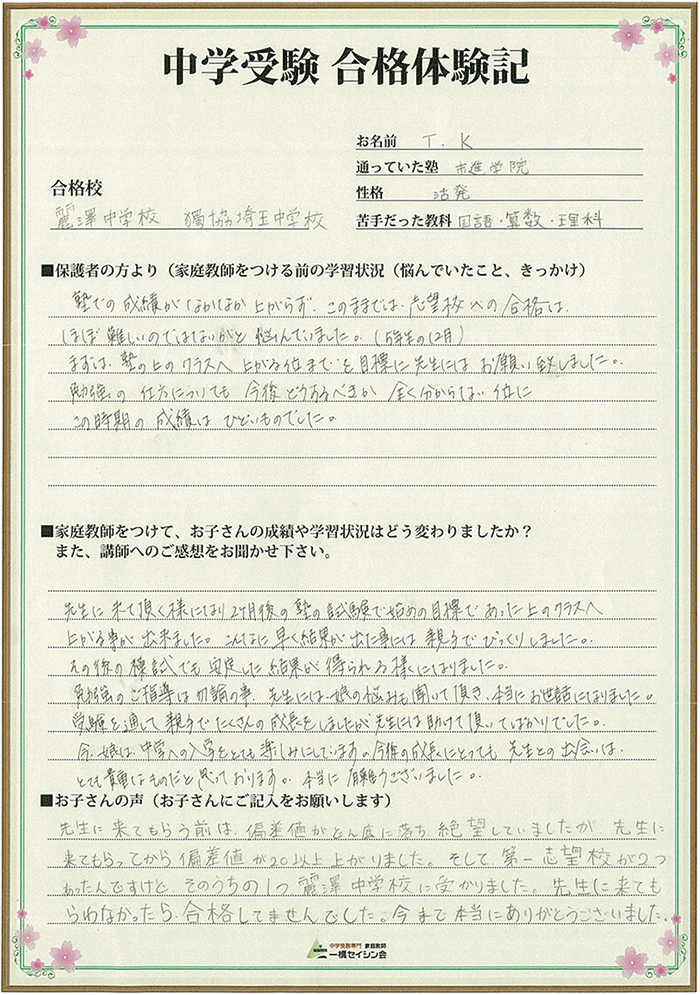 中学受験 合格体験記
お名前 T. K
通っていた塾 市進学院
性格 活発
苦手だった教科 国語・算数・理科
合格校
麗澤中学校 獨協埼玉中学校
■保護者の方より（家庭教師をつける前の学習状況（悩んでいたこと、きっかけ）
塾での成績がなかなか上がらず、このままでは、志望校への合格は、
ほぼ難しいのではないかと悩んでいました。（5年生の12月）
まずは、塾の上のクラスへ上がる位までと目標に先生にはお願い致しました。
勉強の仕方についても今後どうするべきか全く分からない位に
この時期の成績はひどいものでした。
■家庭教師をつけて、お子さんの成績や学習状況はどう変わりましたか？
また、講師へのご感想をお聞かせ下さい。
先生に来て頂く様になり2ヶ月後の塾の試験で始めの目標であった上のクラスへ
上がる事が出来ました。こんなに早く結果が出た事には親子でびっくりしました。
その後の模試でも安定した結果が得られる様になりました。
勉強のご指導は勿論の事、先生には、娘の悩みも聞いて頂き、本当にお世話になりました。
受験を通して親子でたくさんの成長をしましたが先生には助けて頂いてばかりでした。
今、娘は、中学への入学をとても楽しみにしています。今後の成長にとっても先生との出会いは、
とても貴重なものだと思っております。本当に有難うございました。
■お子さんの声（お子さんにご記入をお願いします）
先生に来てもらう前は、偏差値がどん底に落ち、絶望していましたが、先生に
来てもらってから偏差値が20以上上がりました。そして、第一志望校が2つ
あったんですけど、そのうちの1つ麗澤中学校に受かりました。先生に来ても
らわなかったら、合格してませんでした。今まで本当にありがとうございました。
中学受験専門 家庭教師
一橋セイシン会